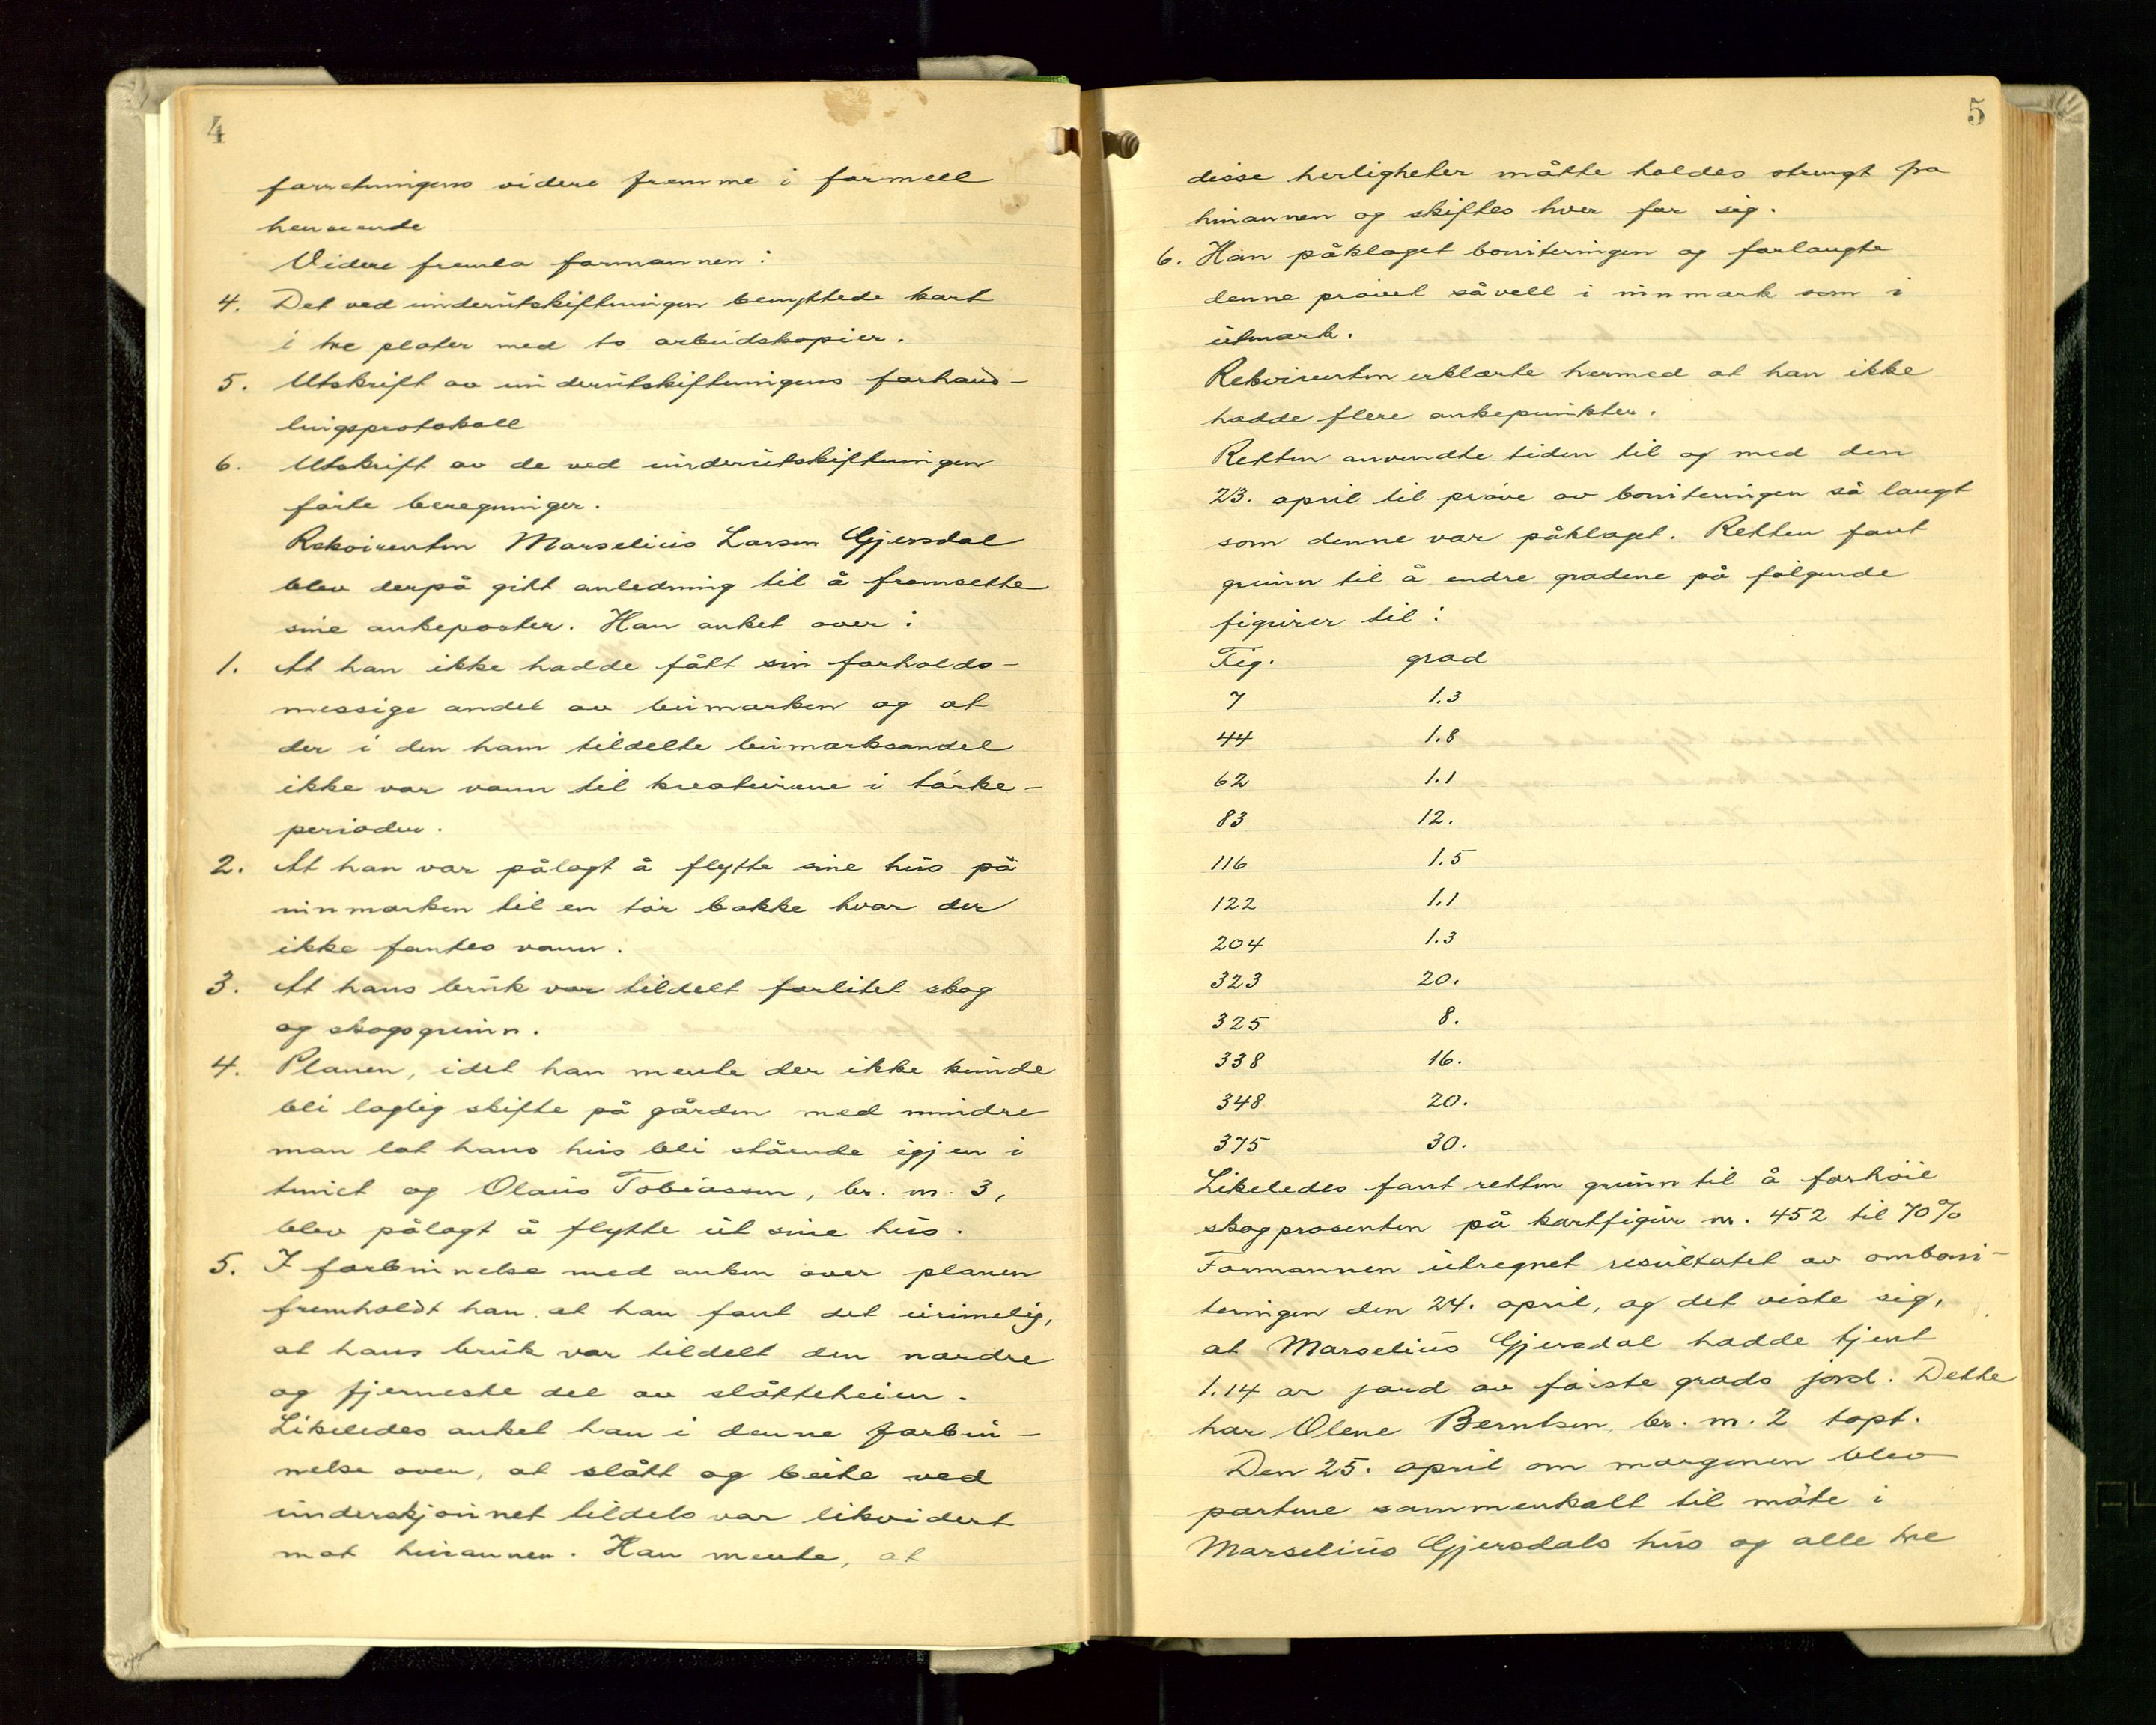 4
forretningens videre fremme i formell
henseende
Videre fremla formannen:
4. Det ved underutskiftningen benyttede kart
i tre plater med to arbeidskopier.
5. Utskrift av underutskiftningens forhand-
lingsprotokoll
6. Utskrift av de ved underutskiftningen
førte beregninger.
Rekvirenten Marselius Larsen Gjersdal
blev derpå gitt anledning til å fremsette
sine ankeposter. Han anket over:
1. At han ikke hadde fått sin forholds-
messige andel av beimarken og at
der i den ham tildelte beimarksandel
ikke var vann til kreaturene i tørke-
perioder.
2. At han var pålagt å flytte sine hus på
innmarken til en tør bakke hvor der
ikke fantes vann.
3. At hans bruk var tildelt forlitet skog
og skogsgrunn.
4. Planen, idet han mente der ikke kunde
bli laglig skifte på gården med mindre
man lot hans hus bli stående igjen i
tunet og Olaus Tobiassen, br. nr. 3,
blev pålagt å flytte ut sine hus.
5. I forbinnelse med anken over planen
fremholdt han at han fant det urimelig,
at hans bruk var tildelt den nordre
og fjerneste del av slåtteheien.
Likeledes anket han i denne forbin-
nelse over, at slått og beite ved
underskjønnet tildels var likvidert
mot hinannen. Han mente, at
5
disse herligheter måtte holdes strengt fra
hinannen og skiftes hver for sig.
6. Han påklaget boniteringen og forlangte
denne prøvet såvell i innmark som i
utmark.
Rekvirenten erklærte hermed at han ikke
hadde flere ankepunkter.
Retten anvendte tiden til og med den
23. april til prøve av boniteringen så langt
som denne var påklaget. Retten fant
grunn til å endre gradene på følgende
figurer til:
Fig. grad
7 1.3
44 1.8
62 1.1
83 12.
116 1.5
122 1.1
204 1.3
323 20.
325 8.
338 16.
348 20.
375 30.
Likeledes fant retten grunn til å forhøie
skogprosenten på kartfigur nr. 452 til 70%
Formannen utregnet resultatet av omboni-
teringen den 24. april, og det viste sig,
at Marselius Gjersdal hadde tjent
1.14 ar jord av første grads jord. Dette
har Olene Berntsen, br. nr. 2 tapt.
Den 25. april om morgenen blev
partene sammenkalt til møte i
Marselius Gjersdals hus og alle tre